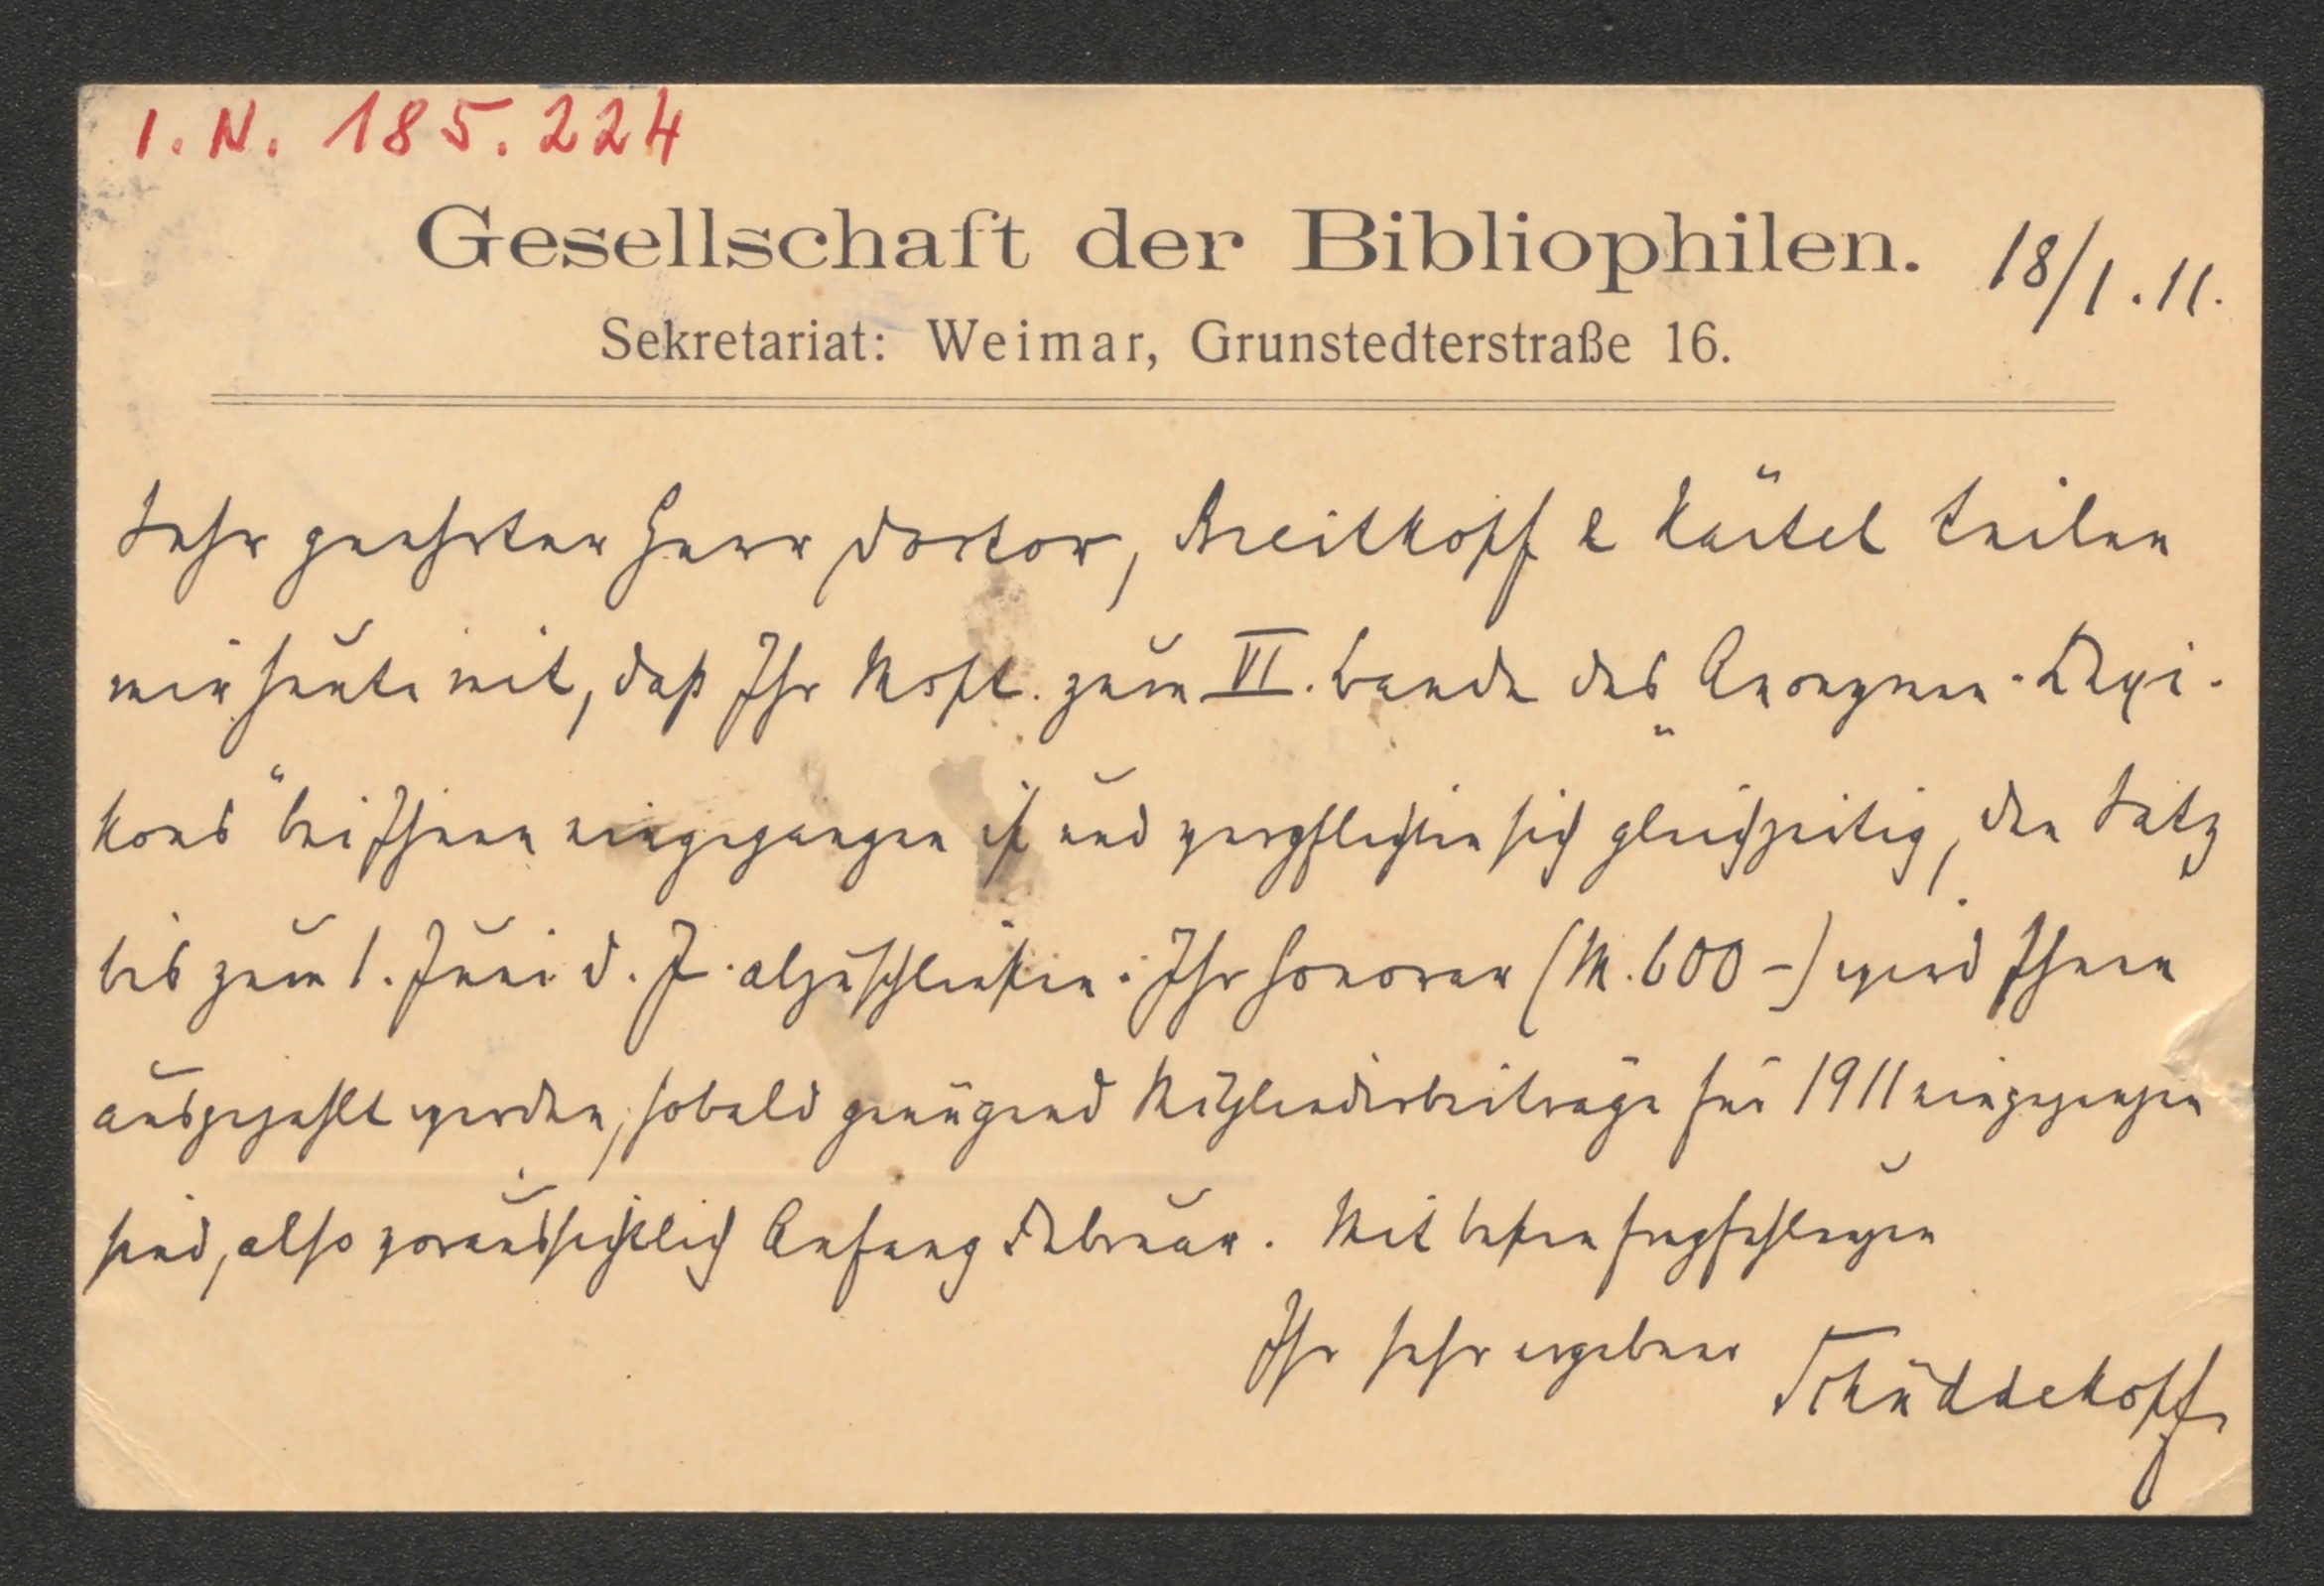 I. N. 185.224
Gesellschaft der Bibliophilen. 18/1.11.
Sekretariat: Weimar, Grunstedterstraße 16.
Sehr geehrter Herr Doctor, Breitkopf & Härtel teilen
mir heute mit, daß Ihr Mspt. zum VI. Bande des „Anonymen-Lexi-
kons“ bei Ihnen eingegangen ist und verpflichten sich gleichzeitig, den Satz
bis zum 1. Juni d. J. abzuschließen. Ihr Honorar (M. 600 –) wird Ihnen
ausgezahlt werden, sobald genügend Mitgliederbeiträge für 1911 eingegangen
sind, also voraussichtlich Anfang Februar. Mit besten Empfehlungen
Ihr sehr ergebener Schüddekopf